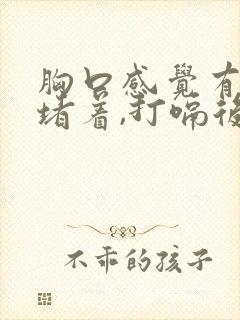 胸口感覺有
堵著,打嗝後
不乖的孩子